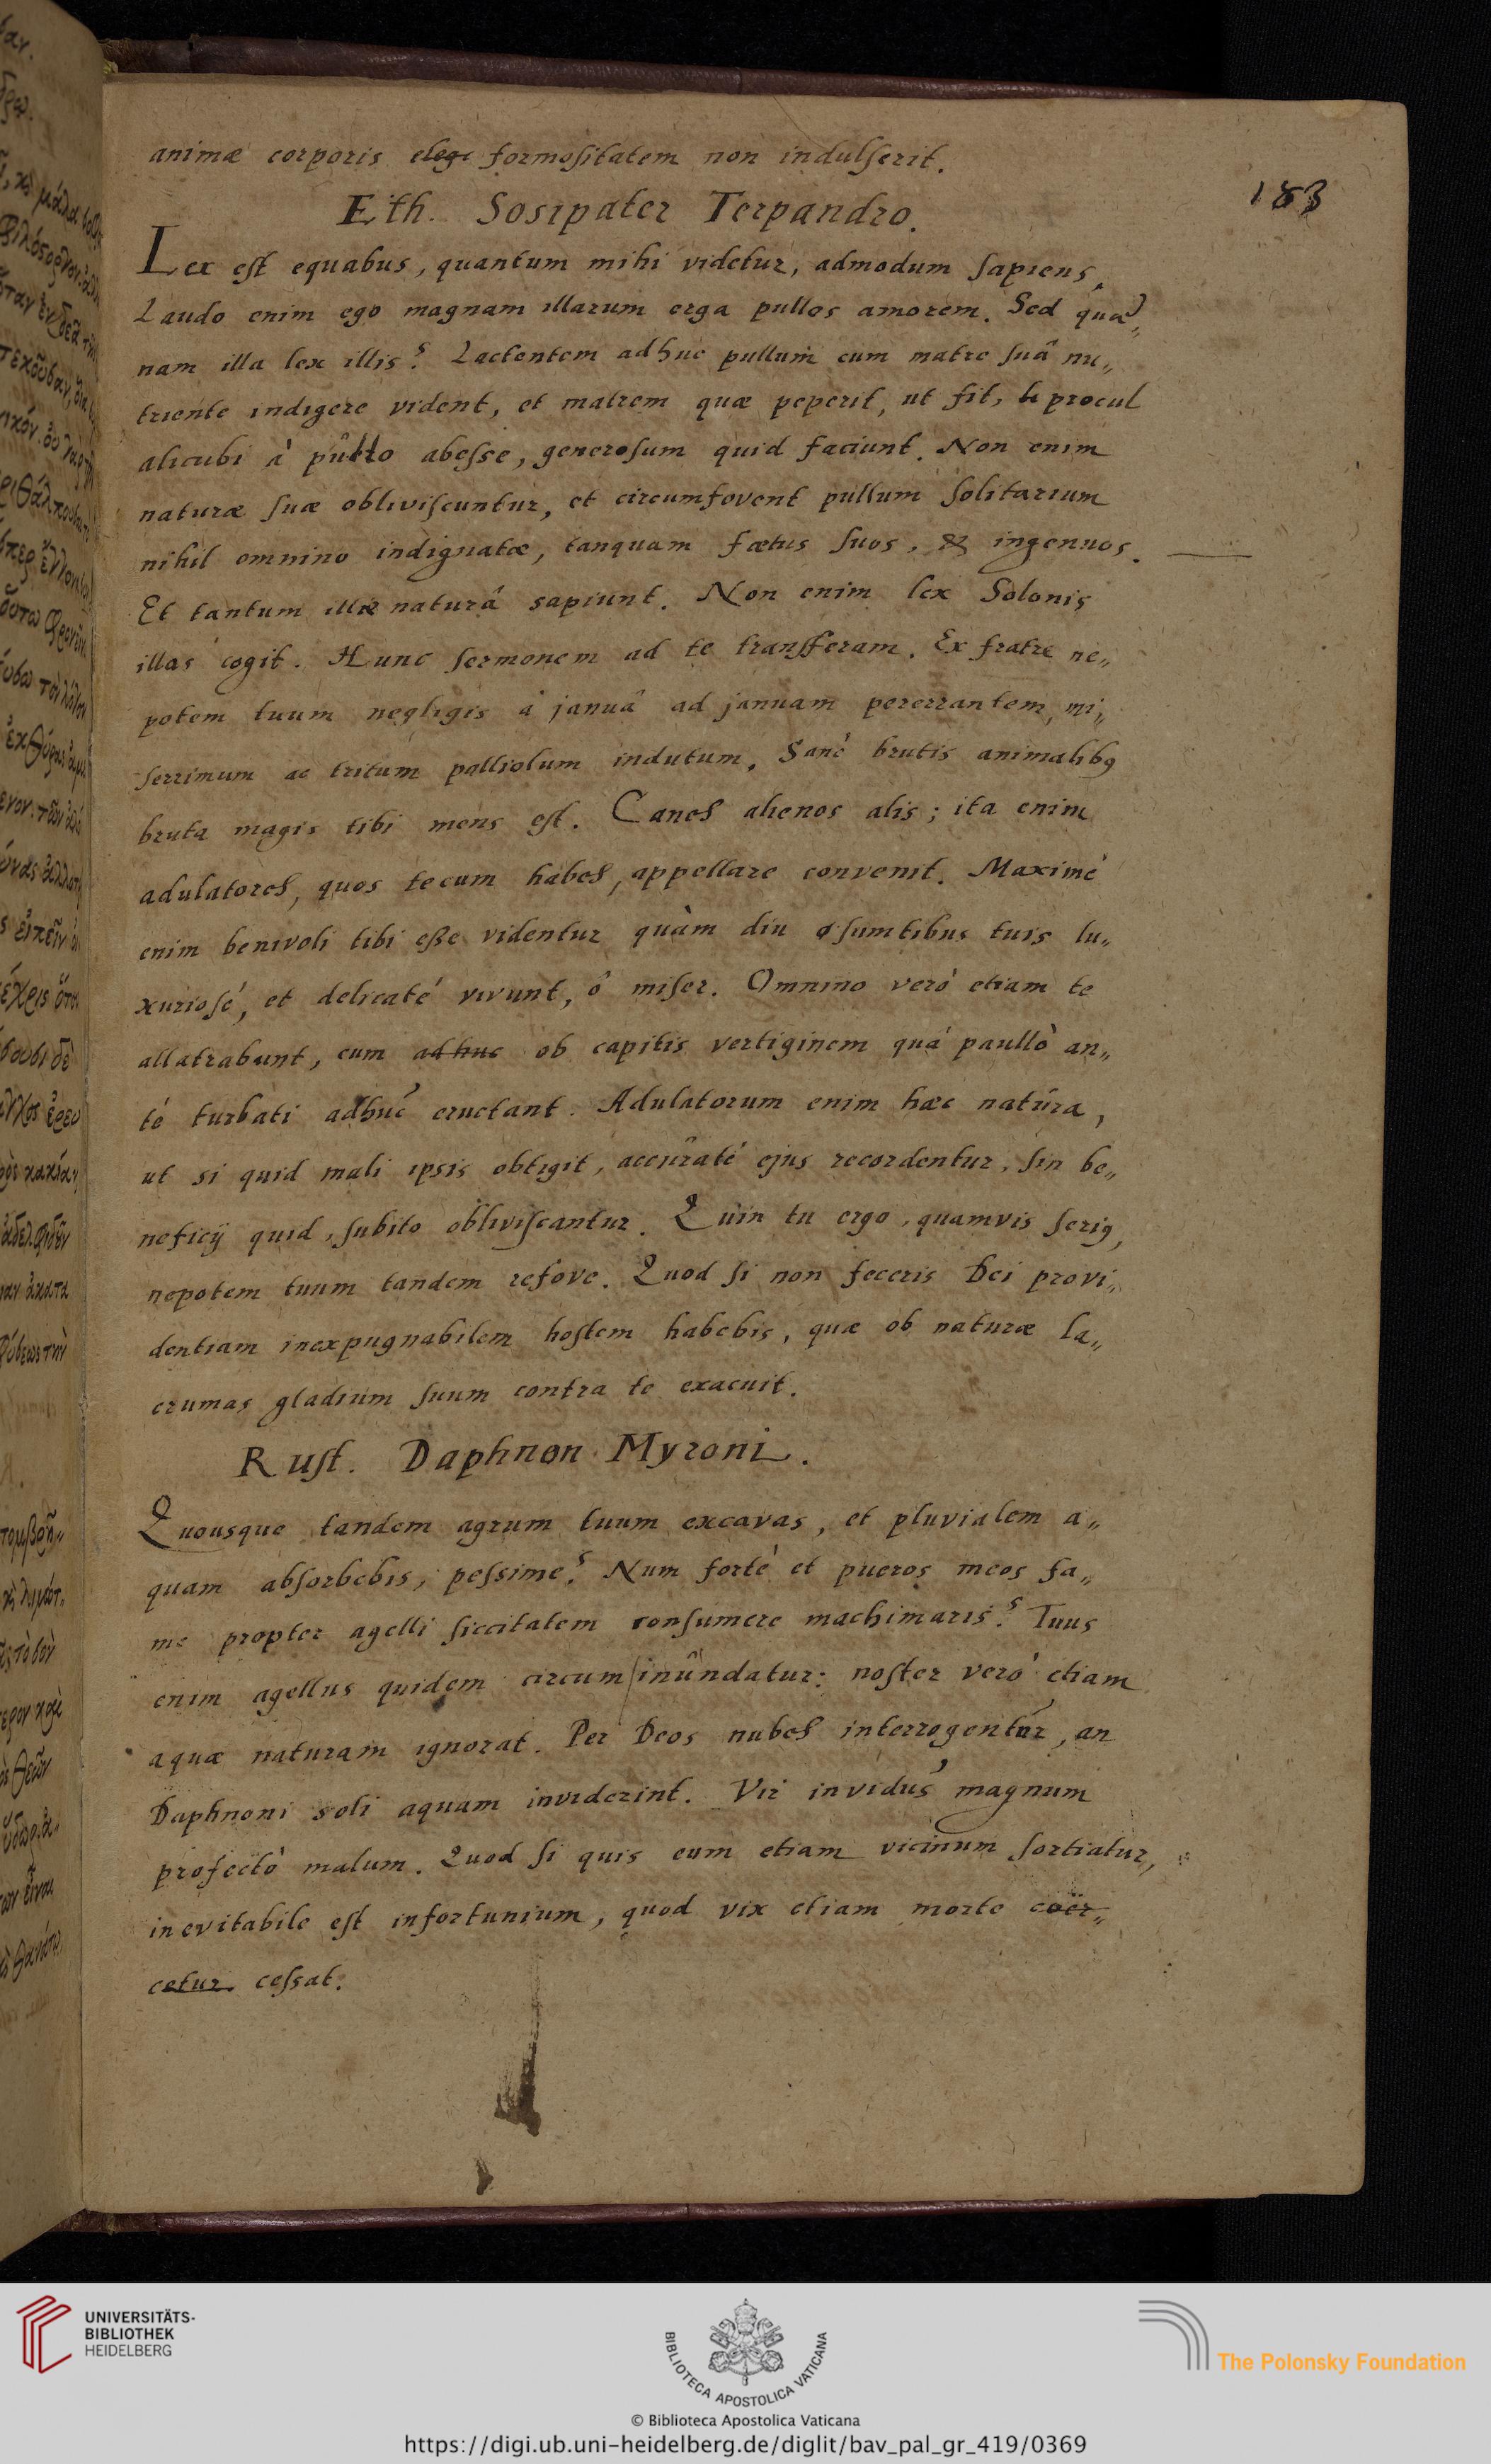 animæ corporis elege formositatem non indulserit.
183
Eth. Sosipater Terpandro.
Lex est equabus, quantum mihi videtur, admodum sapiens.
Laudo enim ego magnam illarum erga pullos amorem. Sed quæ„
nam illa lex illis? Lactentem adhuc pullum cum matre suâ nu„
triente indigere vident, et matrem quæ peperit, ut fit, procul
alicubi à pullo abesse, generosum quid faciunt. Non enim
naturæ suæ obliviscuntur, et circumfovent pullum solitarium
nihil omnino indignatæ, tanquam fœtus suos, & ingenuos.
Et tantum illæ naturâ sapiunt. Non enim lex Solonis
illas cogit. Hunc sermonem ad te transferam. Ex fratre ne„
potem tuum negligis à januâ ad januam pererrantem, mi„
serrimum ac tritum palliolum indutum. Sanè brutis animalibꝯ
bruta magis tibi mens est. Canes alienos alis; ita enim
adulatores, quos tecum habes, appellare convenit. Maximè
enim benivoli tibi esse videntur quàm diu sumtibus tuis lu„
xuriosé, et delicaté vivunt, ô miser. Omnino veró etiam te
allatrabunt, cum adhuc ob capitis vertiginem quá paullò an„
té turbati adhuc eructant. Adulatorum enim hæc natura,
ut si quid mali ipsis obtigit, accuraté ejus recordentur, sin be„
neficij quid, subito obliviscantur. Quin tu ergo, quamvis seriꝯ,
nepotem tuum tandem refove. Quod si non feceris Dei provi„
dentiam inexpugnabilem hostem habebis, quæ ob naturæ la„
crumas gladium suum contra te exacuit.
Rust. Daphnon Myroni.
Quousque tandem agrum tuum excavas, et pluvialem a„
quam absorbebis, pessime? Num fortè et pueros meos fa„
me propter agelli siccitatem consumere machimaris? Tuus
enim agellus quidem circum|inundatur: noster veró etiam
aquæ naturam ignorat. Per Deos nubes interrogentur, an
Daphnoni soli aquam inviderint. Vir invidus magnum
profectò malum. Quod si quis eum etiam vicinum sortiatur,
inevitabile est infortunium, quod vix etiam morte coër„
cetur cessat.
UNIVERSITÄTS-
BIBLIOTHEK
HEIDELBERG
BIBLIOTECA APOSTOLICA VATICANA
The Polonsky Foundation
© Biblioteca Apostolica Vaticana
https://digi.ub.uni-heidelberg.de/diglit/bav_pal_gr_419/0369